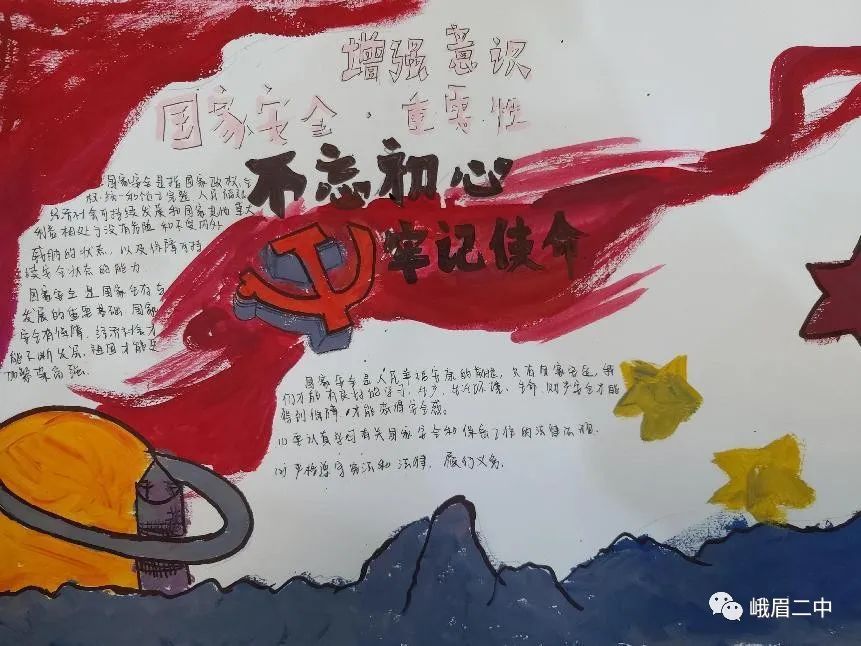 增强意识
国家安全·重要性
不忘初心
牢记使命
国家安全是指国家政权、主
权、统一和领土完整、人民福祉、
经济社会可持续发展和国家其他重大
利益相对处于没有危险和不受内外
威胁的状态，以及保障可持
续安全状态的能力
国家安全是国家生存与
发展的重要基础，国家
安全有保障，经济社会才
能不断发展，祖国才能更
加繁荣富强。
国家安全是人民幸福安康的前提，只有国家安全，我
们才能有良好的学习、生产、生活环境、生命、财产安全才能
得到保障，才能获得安全感。
(1)要认真学习有关国家安全和保密工作的法律法规。
(2)严格遵守宪法和法律，履行义务。
峨眉二中